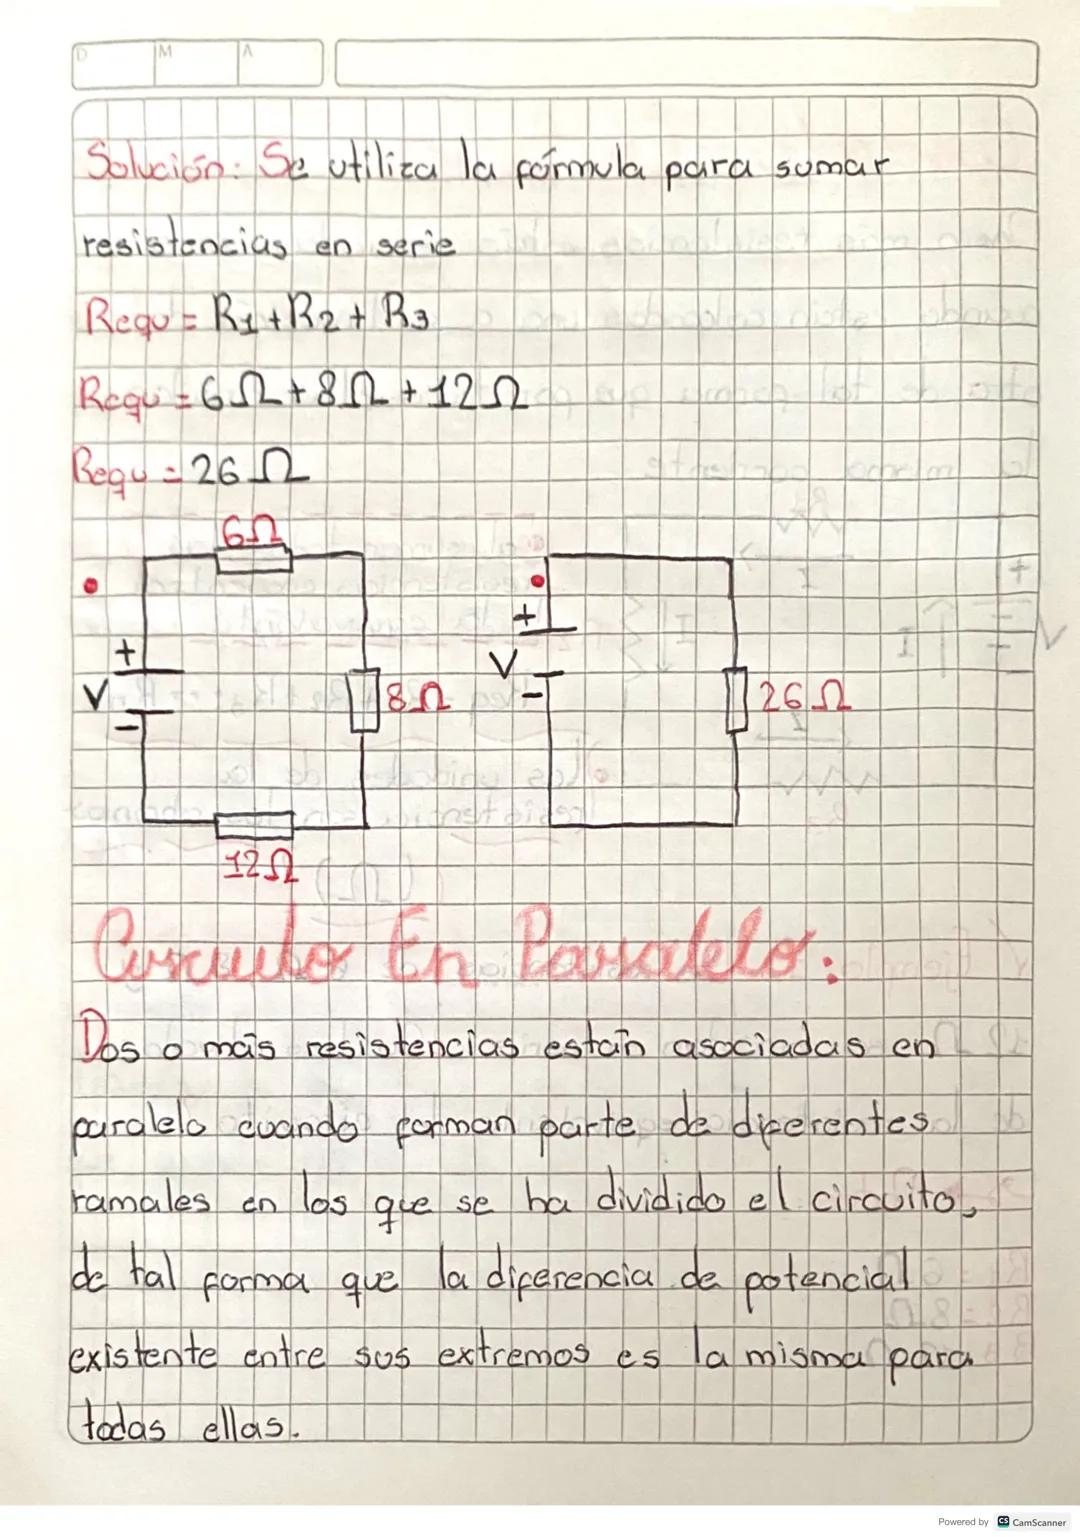 D M A
Solución: Se utiliza la fórmula para sumar
resistencias en serie
Requ = R1 + R2 + R3
Requ = 6Ω + 8Ω + 12Ω
Requ = 26Ω
6Ω
+
V
-
8Ω
12Ω
+
V
-
26Ω
Circuito En Paralelo:
Dos o más resistencias están asociadas en
paralelo cuando forman parte de diferentes
ramales en los que se ha dividido el circuito,
de tal forma que la diferencia de potencial
existente entre sus extremos es la misma para
todas ellas.
Powered by CS CamScanner